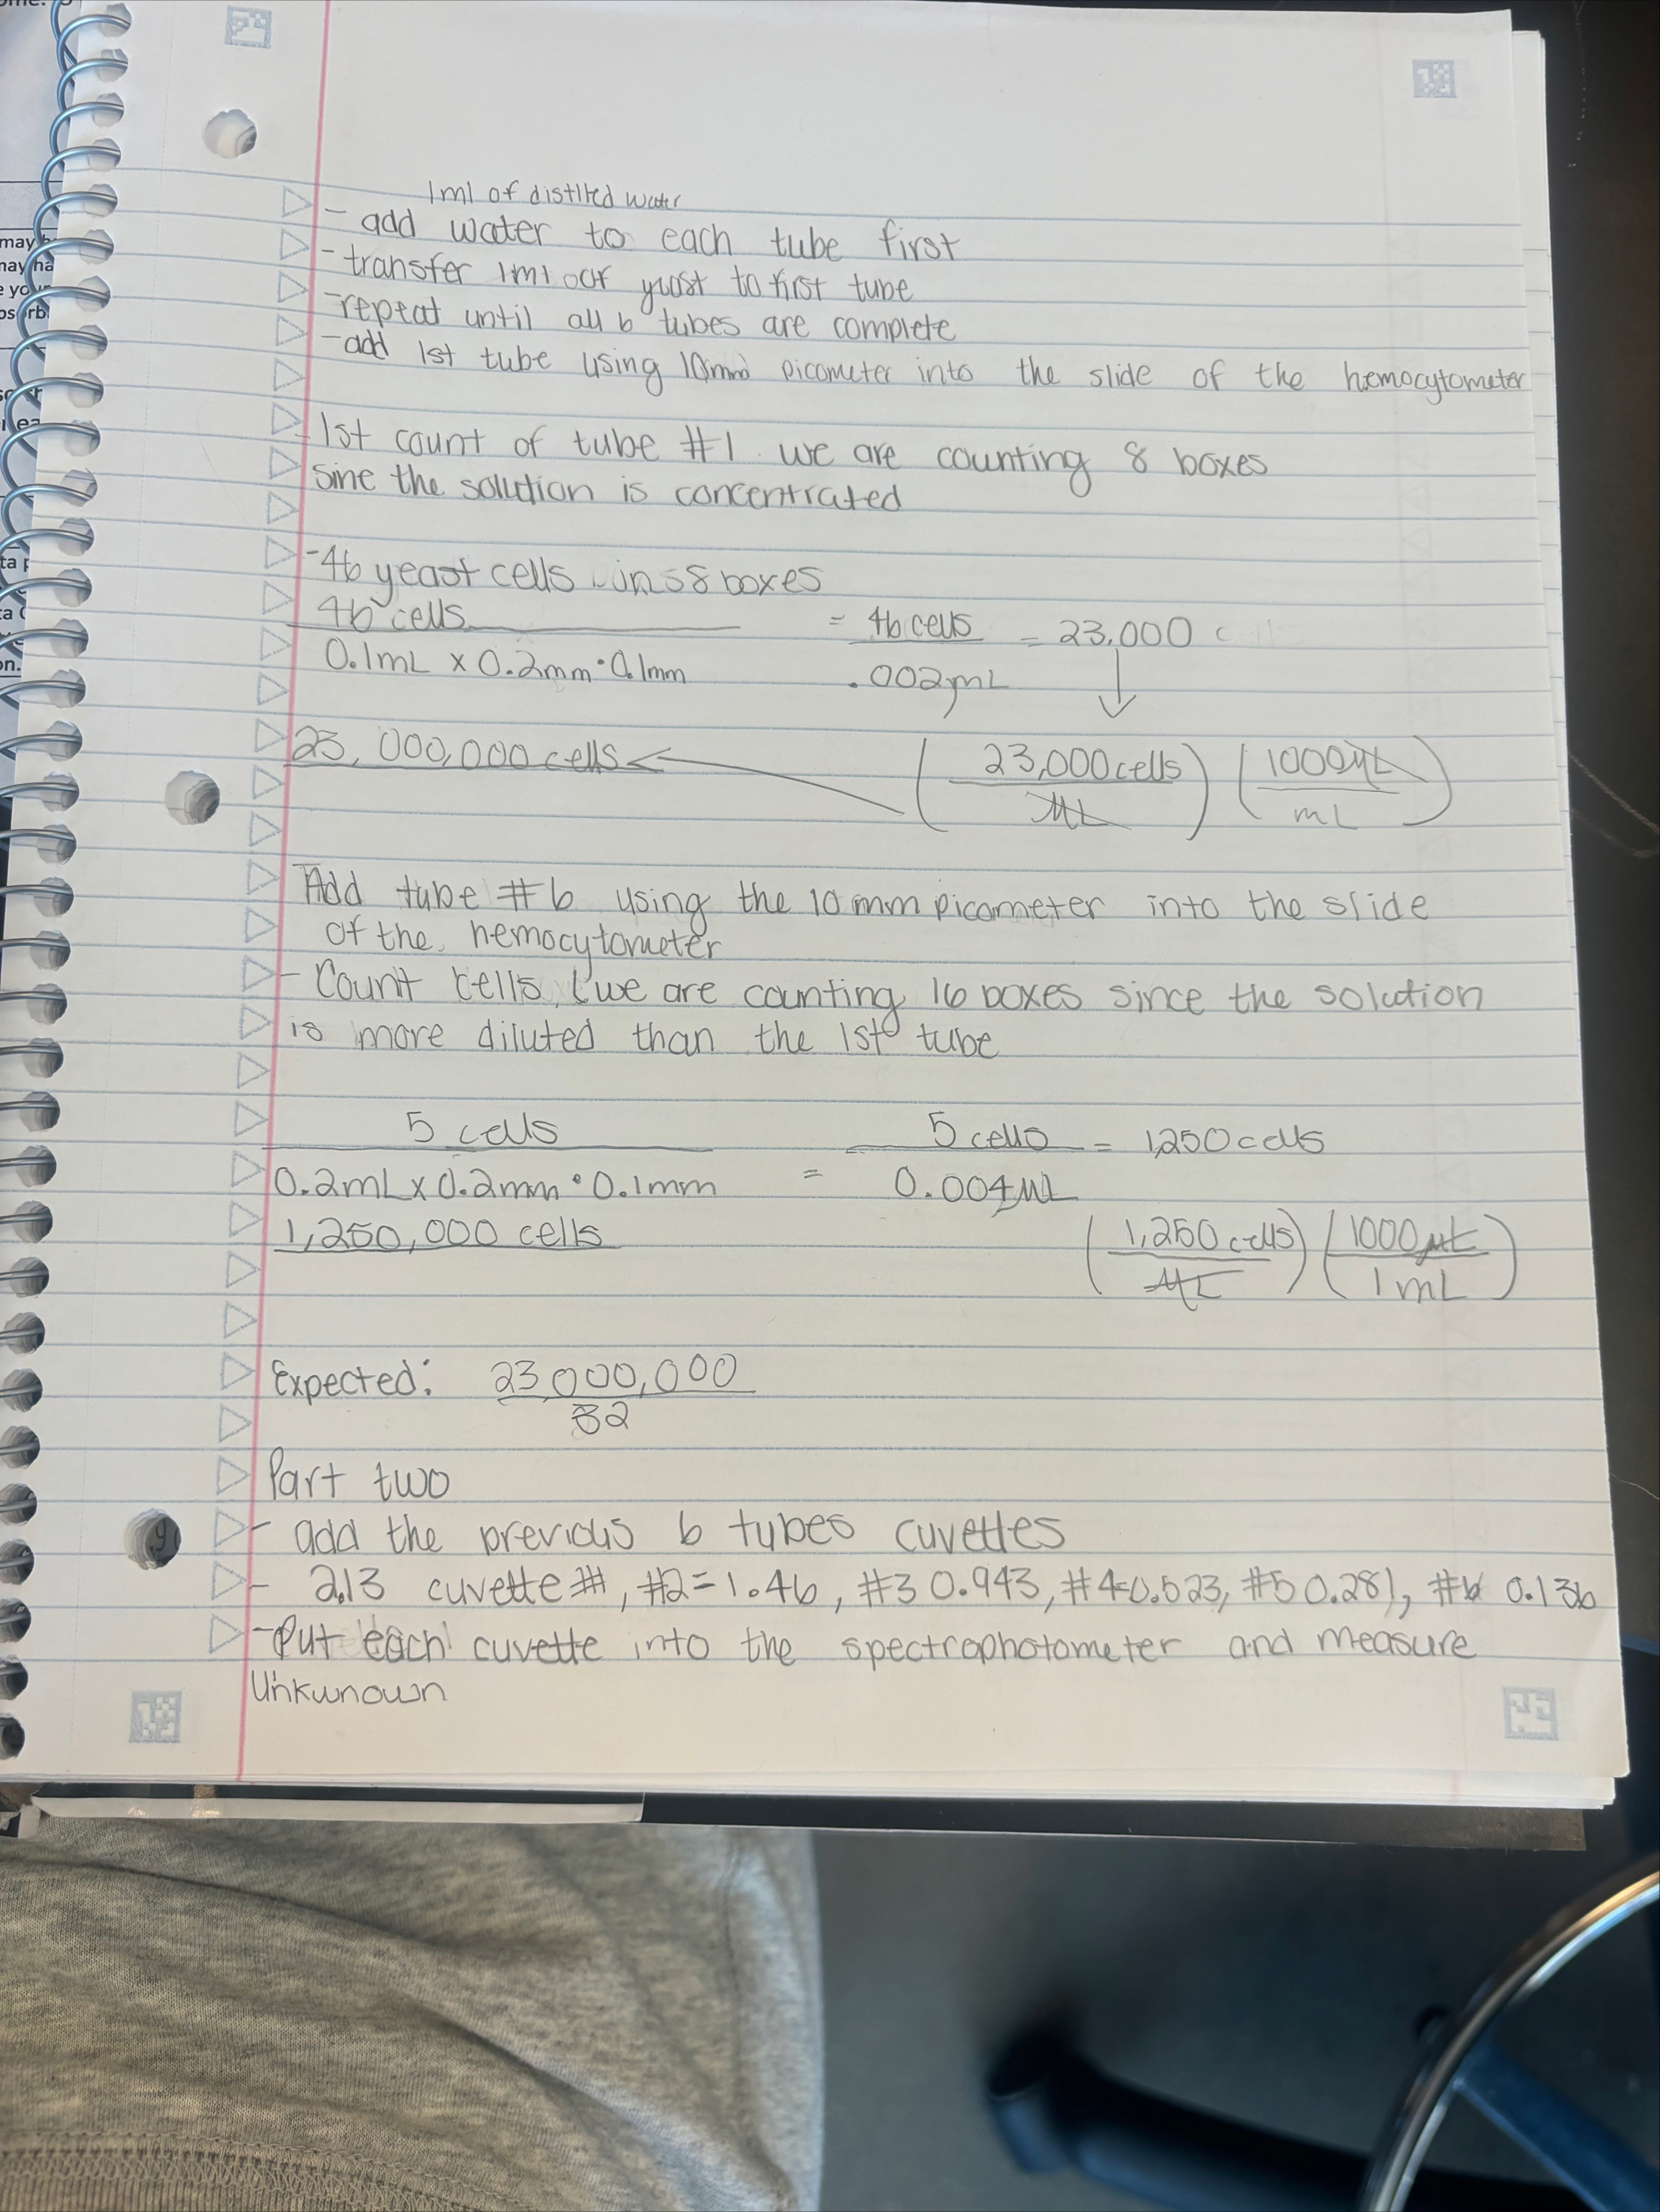 1ml of distlted water
- add water to each tube first
- transfer 1ml oof yeast to first tube
- repeat until all 6 tubes are complete
- add 1st tube using 10mm picometer into the slide of the hemocytometer
- 1st count of tube #1. we are counting 8 boxes
sine the solution is concentrated
- 46 yeast cells in 8 boxes
46 cells = 46 cells = 23,000
0.1mL x 0.2mm · 0.1mm .002mL
23,000,000 cells (23,000 cells) (1000µL)
µL mL
Add tube #6 using the 10mm picometer into the slide
of the hemocytometer
- Count cells, we are counting 16 boxes since the solution
is more diluted than the 1st tube
5 cells 5 cells = 1,250 cells
0.2mL x 0.2mm · 0.1mm = 0.004µL
1,250,000 cells (1,250 cells) (1000µL)
µL 1mL
Expected: 23,000,000
32
Part two
- add the previous 6 tubes cuvettes
- 2.13 cuvette #1, #2=1.46, #3 0.943, #4=0.523, #5 0.281, #6 0.136
- Put each cuvette into the spectrophotometer and measure
Unkwnown
may
may ha
e yo